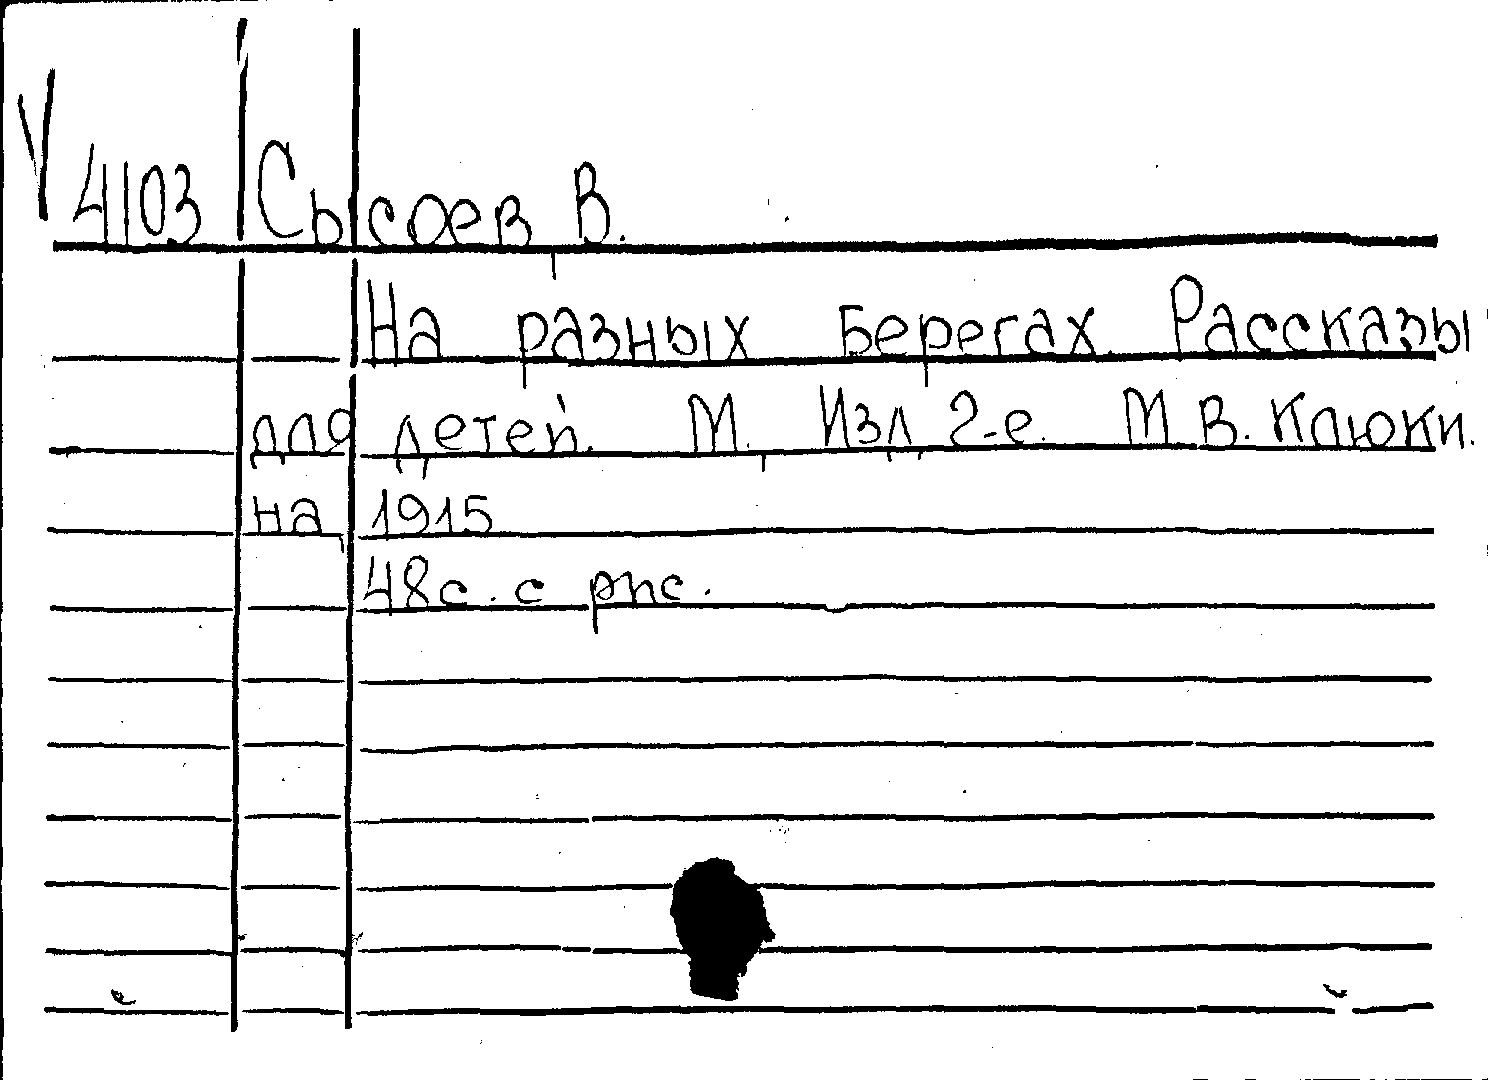 V 4103 Сысоев В.
На разных берегах. Рассказы
для детей. М. Изд. 2-е. М.В. Клюки-
на, 1915
48с. с рис.